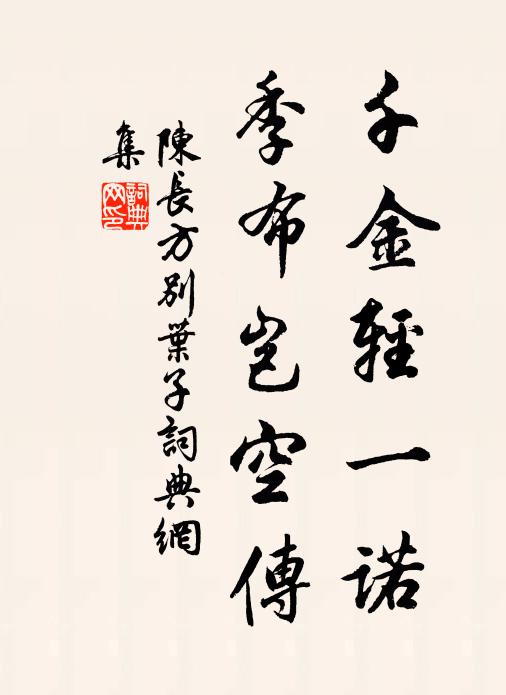 千金輕一諾
季布岂空傳
陳長方別葉子詞典網
集
詞典
网印